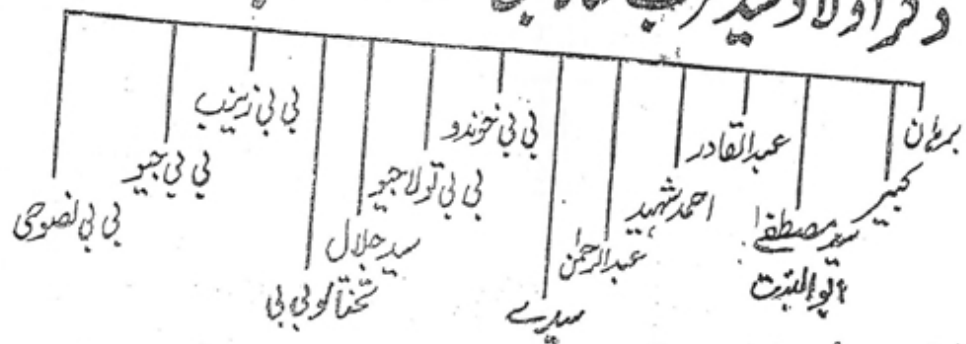 ذکر اولاد سید
برہان
کبیر
سید مصطفےٰ
ابواللیث
عبدالقادر
احمد شہید
عبدالرحمٰن
سیدے
بی بی خوندو
بی بی تولا جیو
سید جلال
بی بی
بی بی زینب
بی بی جیو
بی بی نصوحی